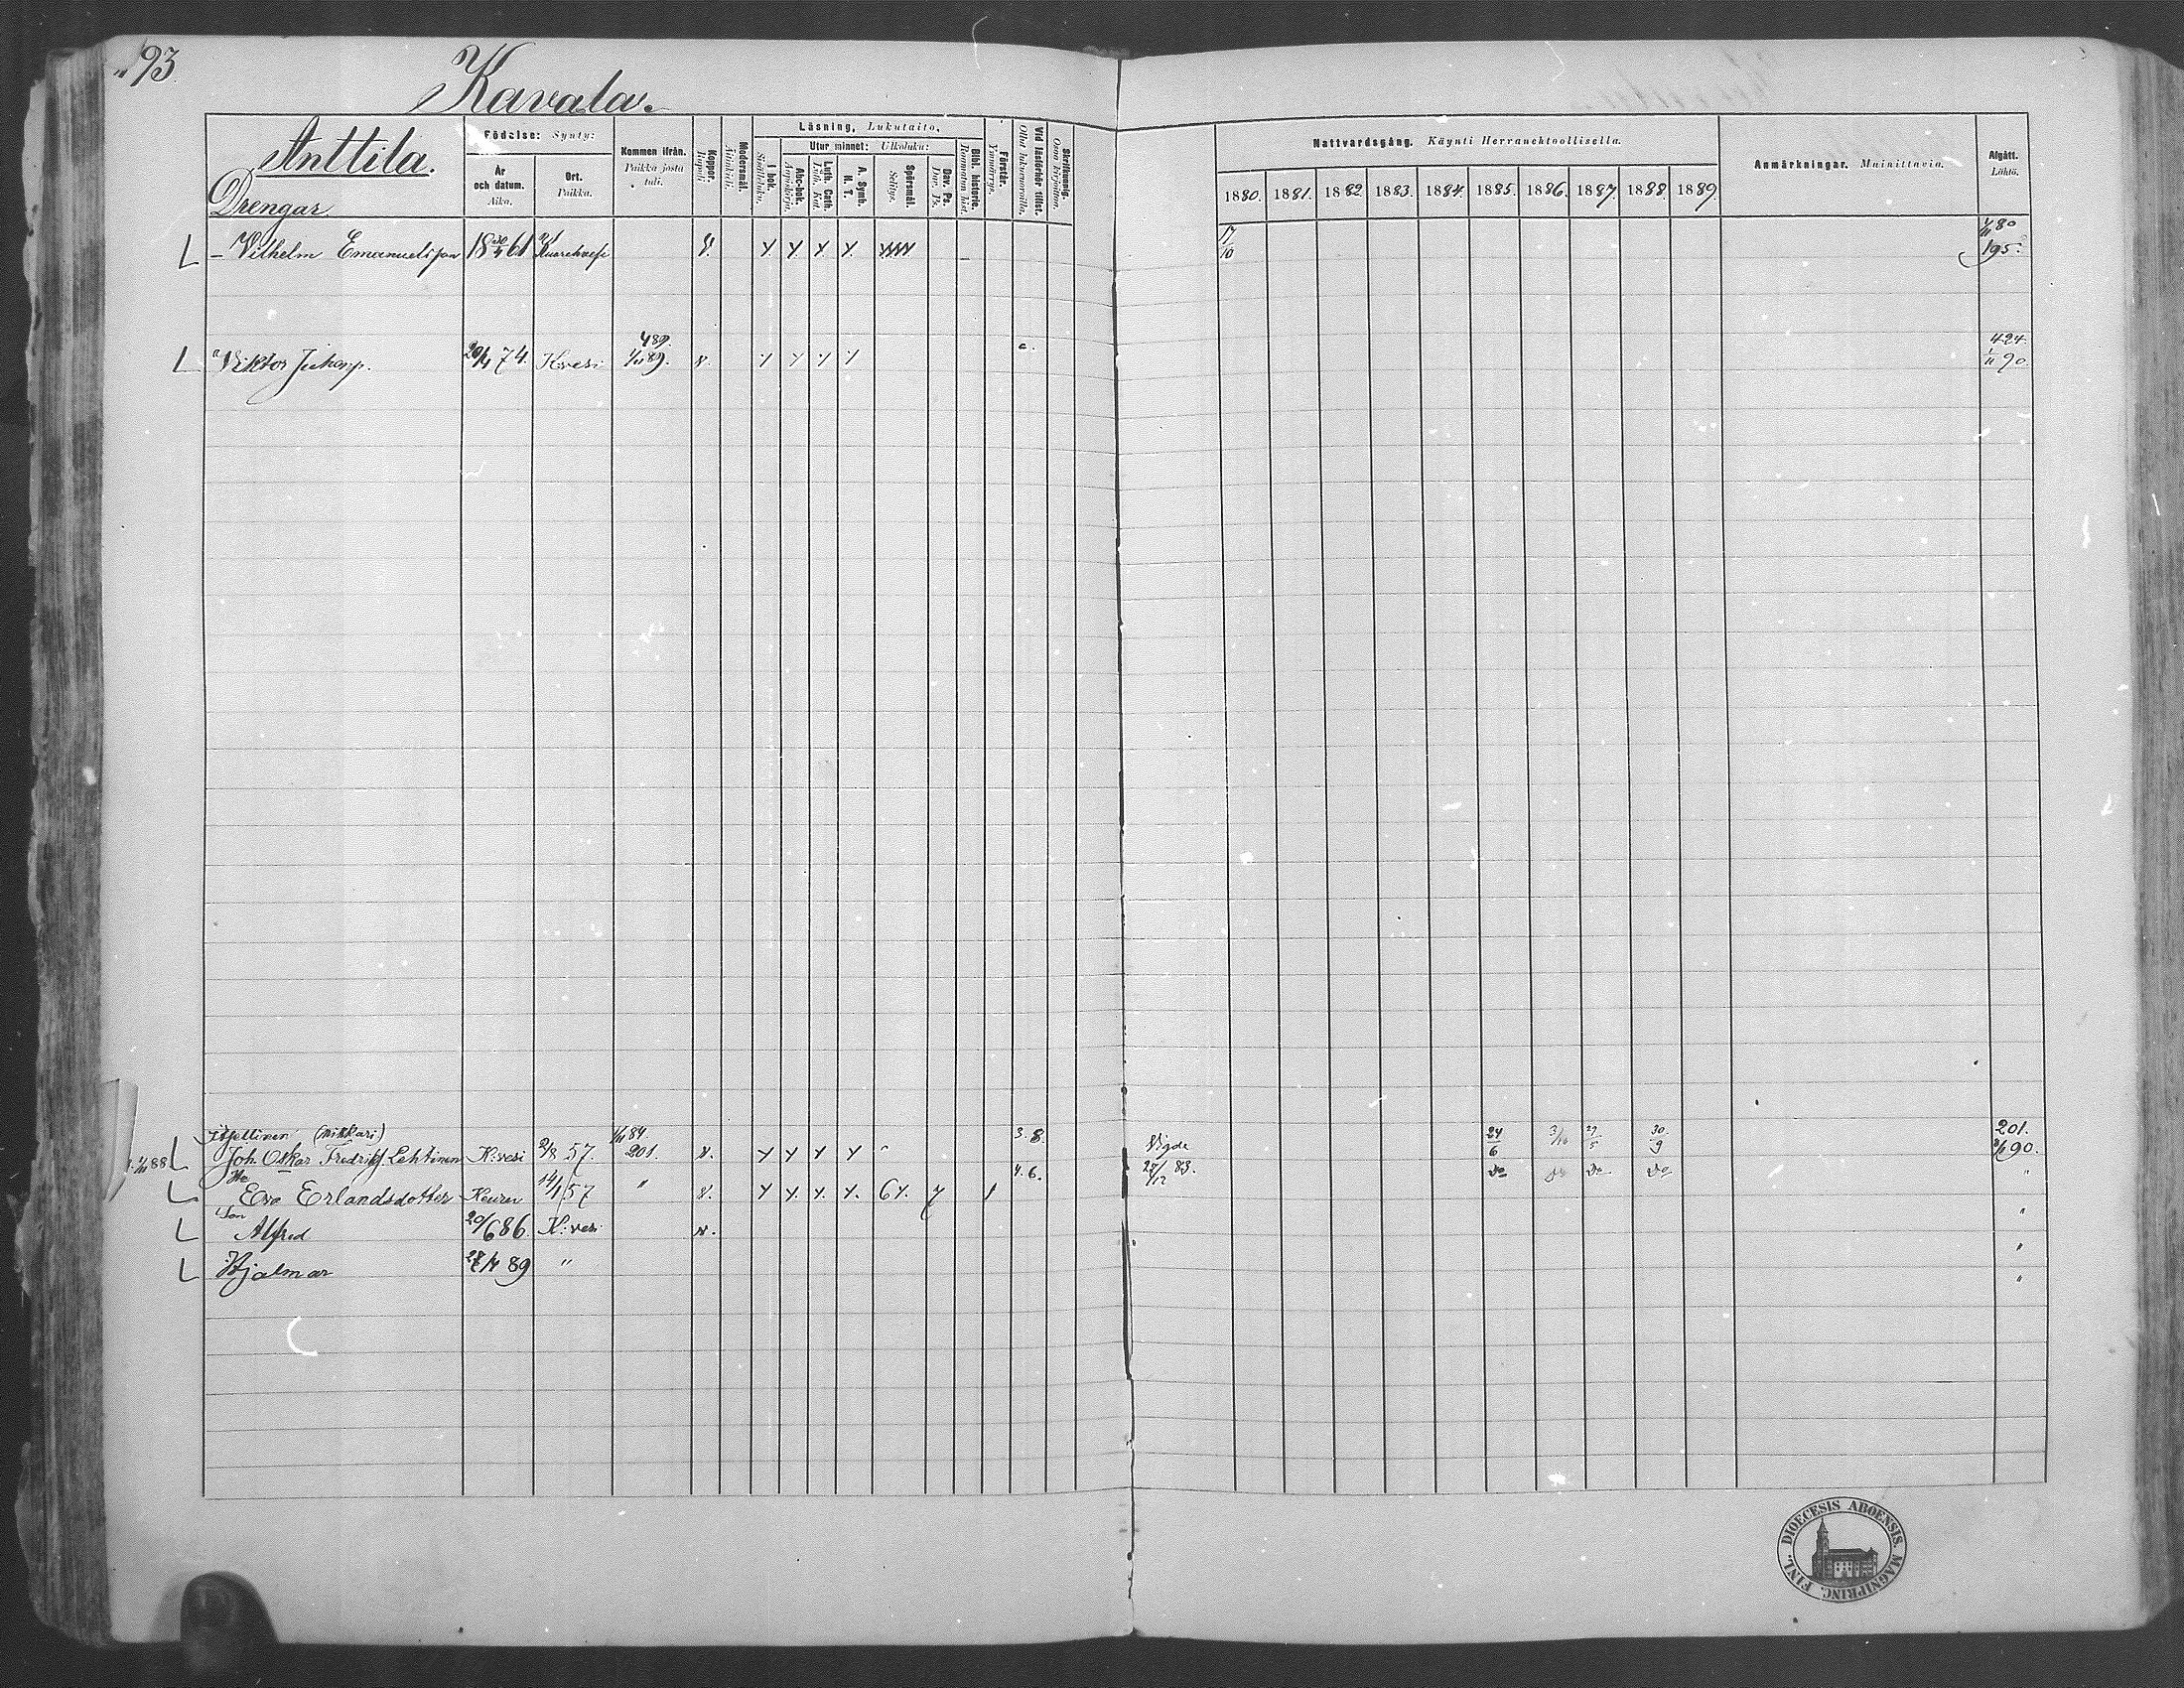 193.
Kavala.
Anttila.
Drengar
Födelse: Synty:
År och datum. Aika.
Ort. Paikka.
Kommen ifrån. Paikka josta tuli.
Koppor. Rupuli.
Modersmål. Äitinkieli.
Läsning, Lukutaito,
I bok. Sisälluku.
Utur minnet: Ulkoluku:
Abc-bok. Aapiskirja.
Luth. Cath. Luth. Kat.
A. Symb. H. T.
Spörsmål. Selitys.
Dav. Ps. Dav. Ps.
Bibl. historie. Raamatun hist.
Förstår. Ymmärrys.
Vid läsförhör tillst. Ollut lukuvuoroilla.
Skrifkunnig. Osaa kirjoittaa.
Nattvardsgång. Käynti Herranehtoollisella.
1880. 1881. 1882. 1883. 1884. 1885. 1886. 1887. 1888. 1889.
Anmärkningar. Muinittavia.
Afgått. Lähtö.
Vilhelm Emanuelsson 18 30/4 61 17/10 1/11 80 195.
Viktor Juhanp. 20/1 74. K:vesi 489. 1/11 89. 424. 1/11 90.
Itsellinen (nikkari) 1/11 84 3. 8. 24/6 3/10 29/5 30/9 201.
Joh. Oskar Fredriks. Lehtinen K:vesi 2/8 57. 201. Vigde 1/11 90.
Hu 4. 6. 27/12 83. Do Do Do Do "
Eva Erlandsdotter Keuru 14/1 57 " 6
Son
Alfred 20/6 86. K:vesi "
Hjalmar 89 " "
DIOECESIS ABOENSIS. MAGNIPRINC. FINL.